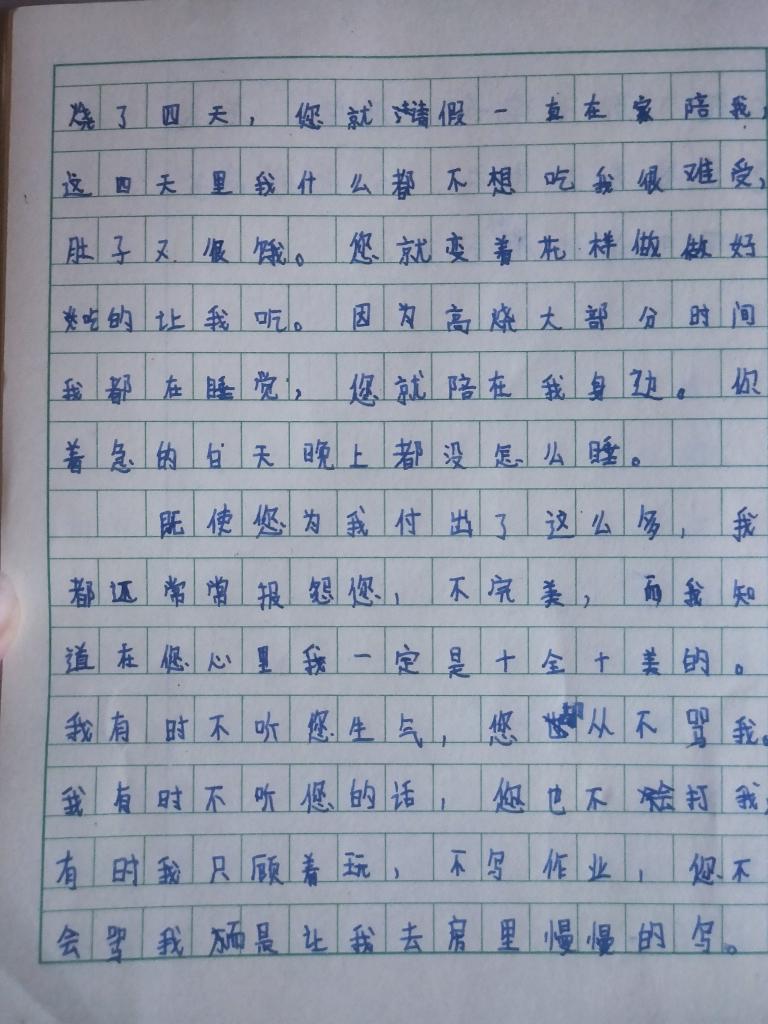 烧了四天，您就请假一直在家陪我，
这四天里我什么都不想吃我很难受，
肚子又很饿。您就变着花样做做好
吃的让我吃。因为高烧大部分时间
我都在睡觉，您就陪在我身边。你
着急的白天晚上都没怎么睡。
既使您为我付出了这么多，我
都还常常报怨您，不完美，而我知
道在您心里我一定是十全十美的。
我有时不听您生气，您都从不骂我。
我有时不听您的话，您也不会打我，
有时我只顾着玩，不写作业，您不
会骂我而是让我去房里慢慢的写。